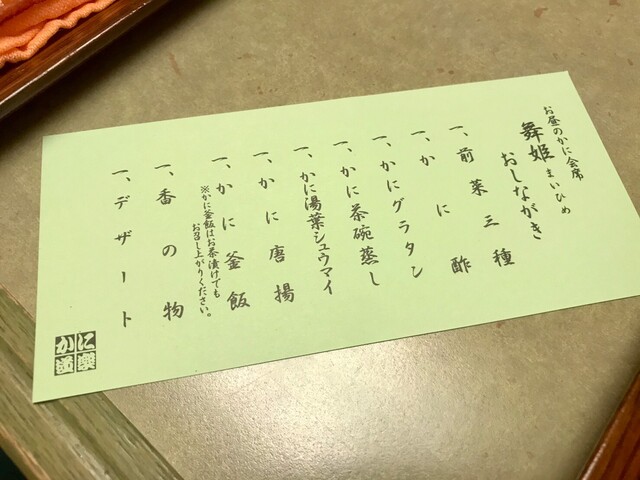 お昼のかに会席
舞姫 まいひめ
おしながき
一、前菜三種
一、かに酢
一、かにグラタン
一、かに茶碗蒸し
一、かに湯葉シュウマイ
一、かに唐揚
一、かに釜飯
※かに釜飯はお茶漬けでも
お召し上がりください。
一、香の物
一、デザート
かに道楽